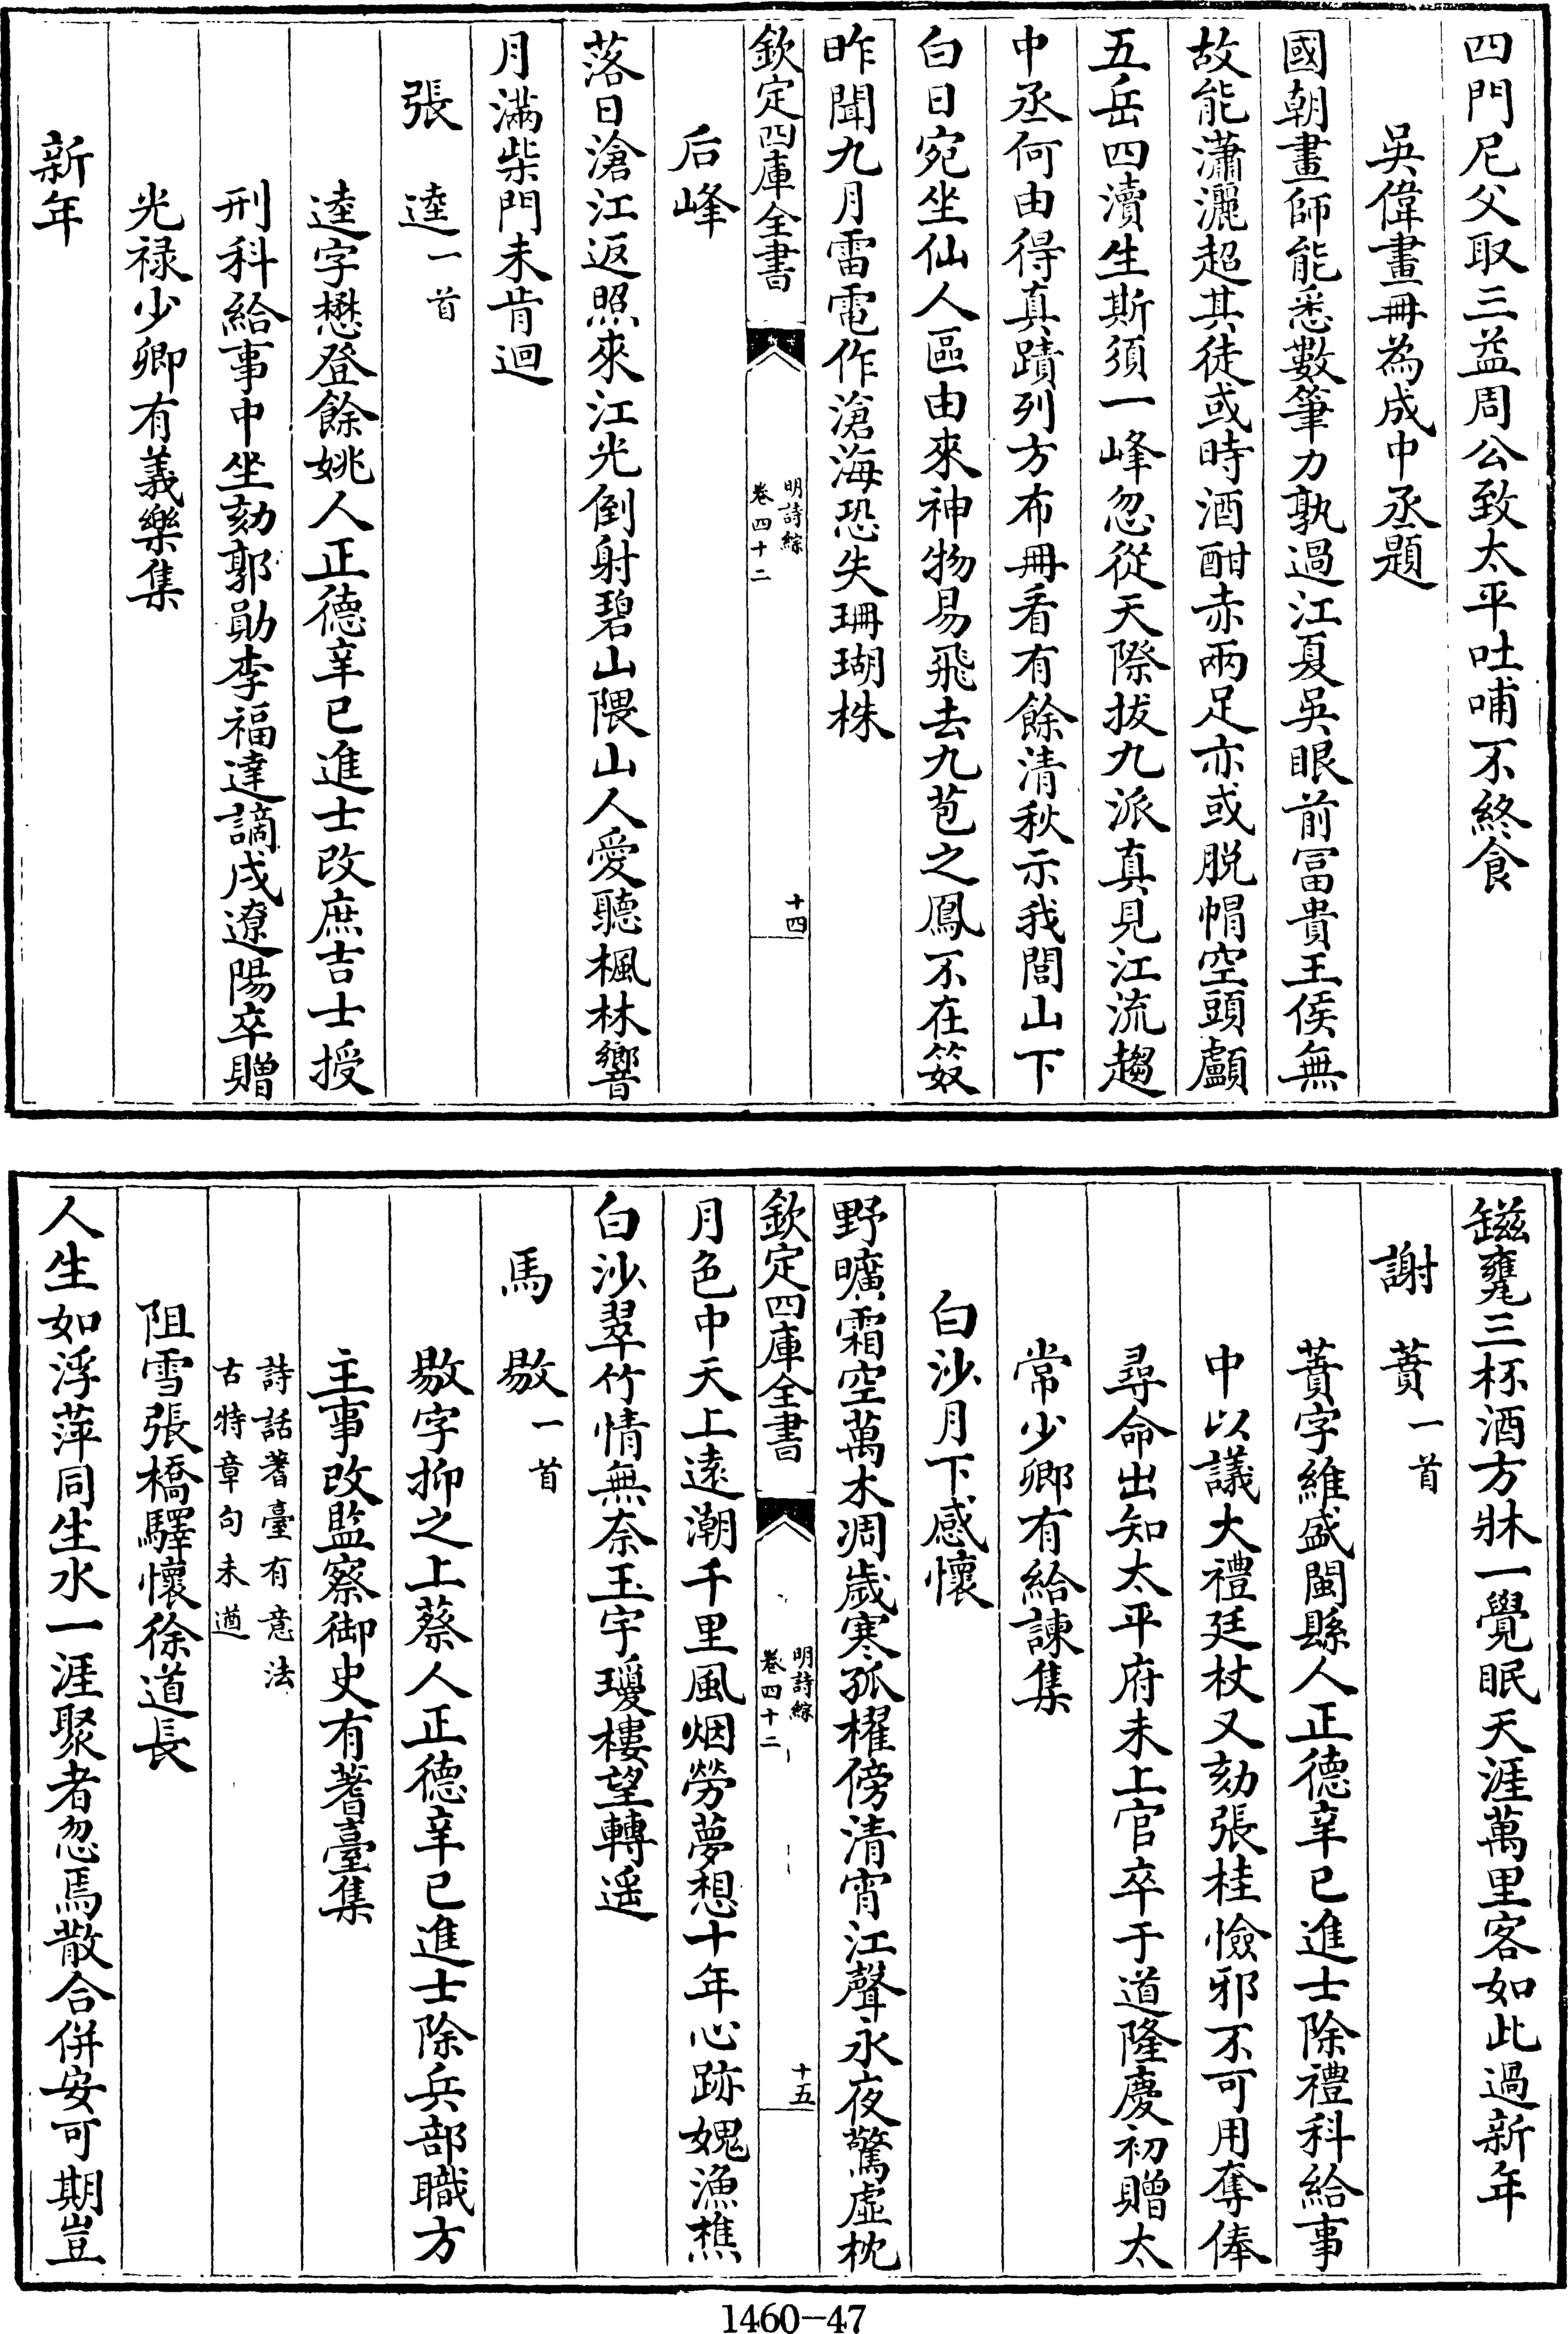 四門尼父取三益周公致太平吐哺不終食
吳偉畫冊為成中丞題
國朝畫師能悉數筆力孰過江夏吳眼前冨貴王侯無
故能瀟灑超其徒或時酒酣赤兩足亦或脱帽空頭顱
五岳四瀆生斯須一峰忽從天際拔九派真見江流趨
中丞何由得真蹟列方布冊看有餘清秋示我閭山下
白日宛坐仙人區由來神物易飛去九苞之鳳不在笯
昨聞九月雷電作滄海恐失珊瑚株
欽定四庫全書
明詩綜
卷四十二
十四
后峰
落日滄江返照來江光倒射碧山隈山人愛聽楓林響
月滿柴門未肯迴
張逵一首
逵字懋登餘姚人正德辛巳進士改庶吉士授
刑科給事中坐劾郭勛李福達謫戍遼陽卒贈
光禄少卿有義樂集
新年
磁甕三杯酒方牀一覺眠天涯萬里客如此過新年
謝蕡一首
蕡字維盛閩縣人正德辛巳進士除禮科給事
中以議大禮廷杖又劾張桂憸邪不可用奪俸
尋命出知太平府未上官卒于道隆慶初贈太
常少卿有給諫集
白沙月下感懷
野曠霜空萬木凋歲寒孤櫂傍清宵江聲永夜驚虛枕
欽定四庫全書
明詩綜
卷四十二
十五
月色中天上遠潮千里風烟勞夢想十年心跡媿漁樵
白沙翠竹情無奈玉宇瓊樓望轉遥
馬敭一首
敭字抑之上蔡人正德辛巳進士除兵部職方
主事改監察御史有蓍臺集
詩話蓍臺有意法
古特章句未遒
阻雪張橋驛懷徐道長
人生如浮萍同生水一涯聚者忽焉散合併安可期豈
1460-47